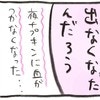 出なくなった
んだろう
夜ナプキンに血が
つかなくなった…